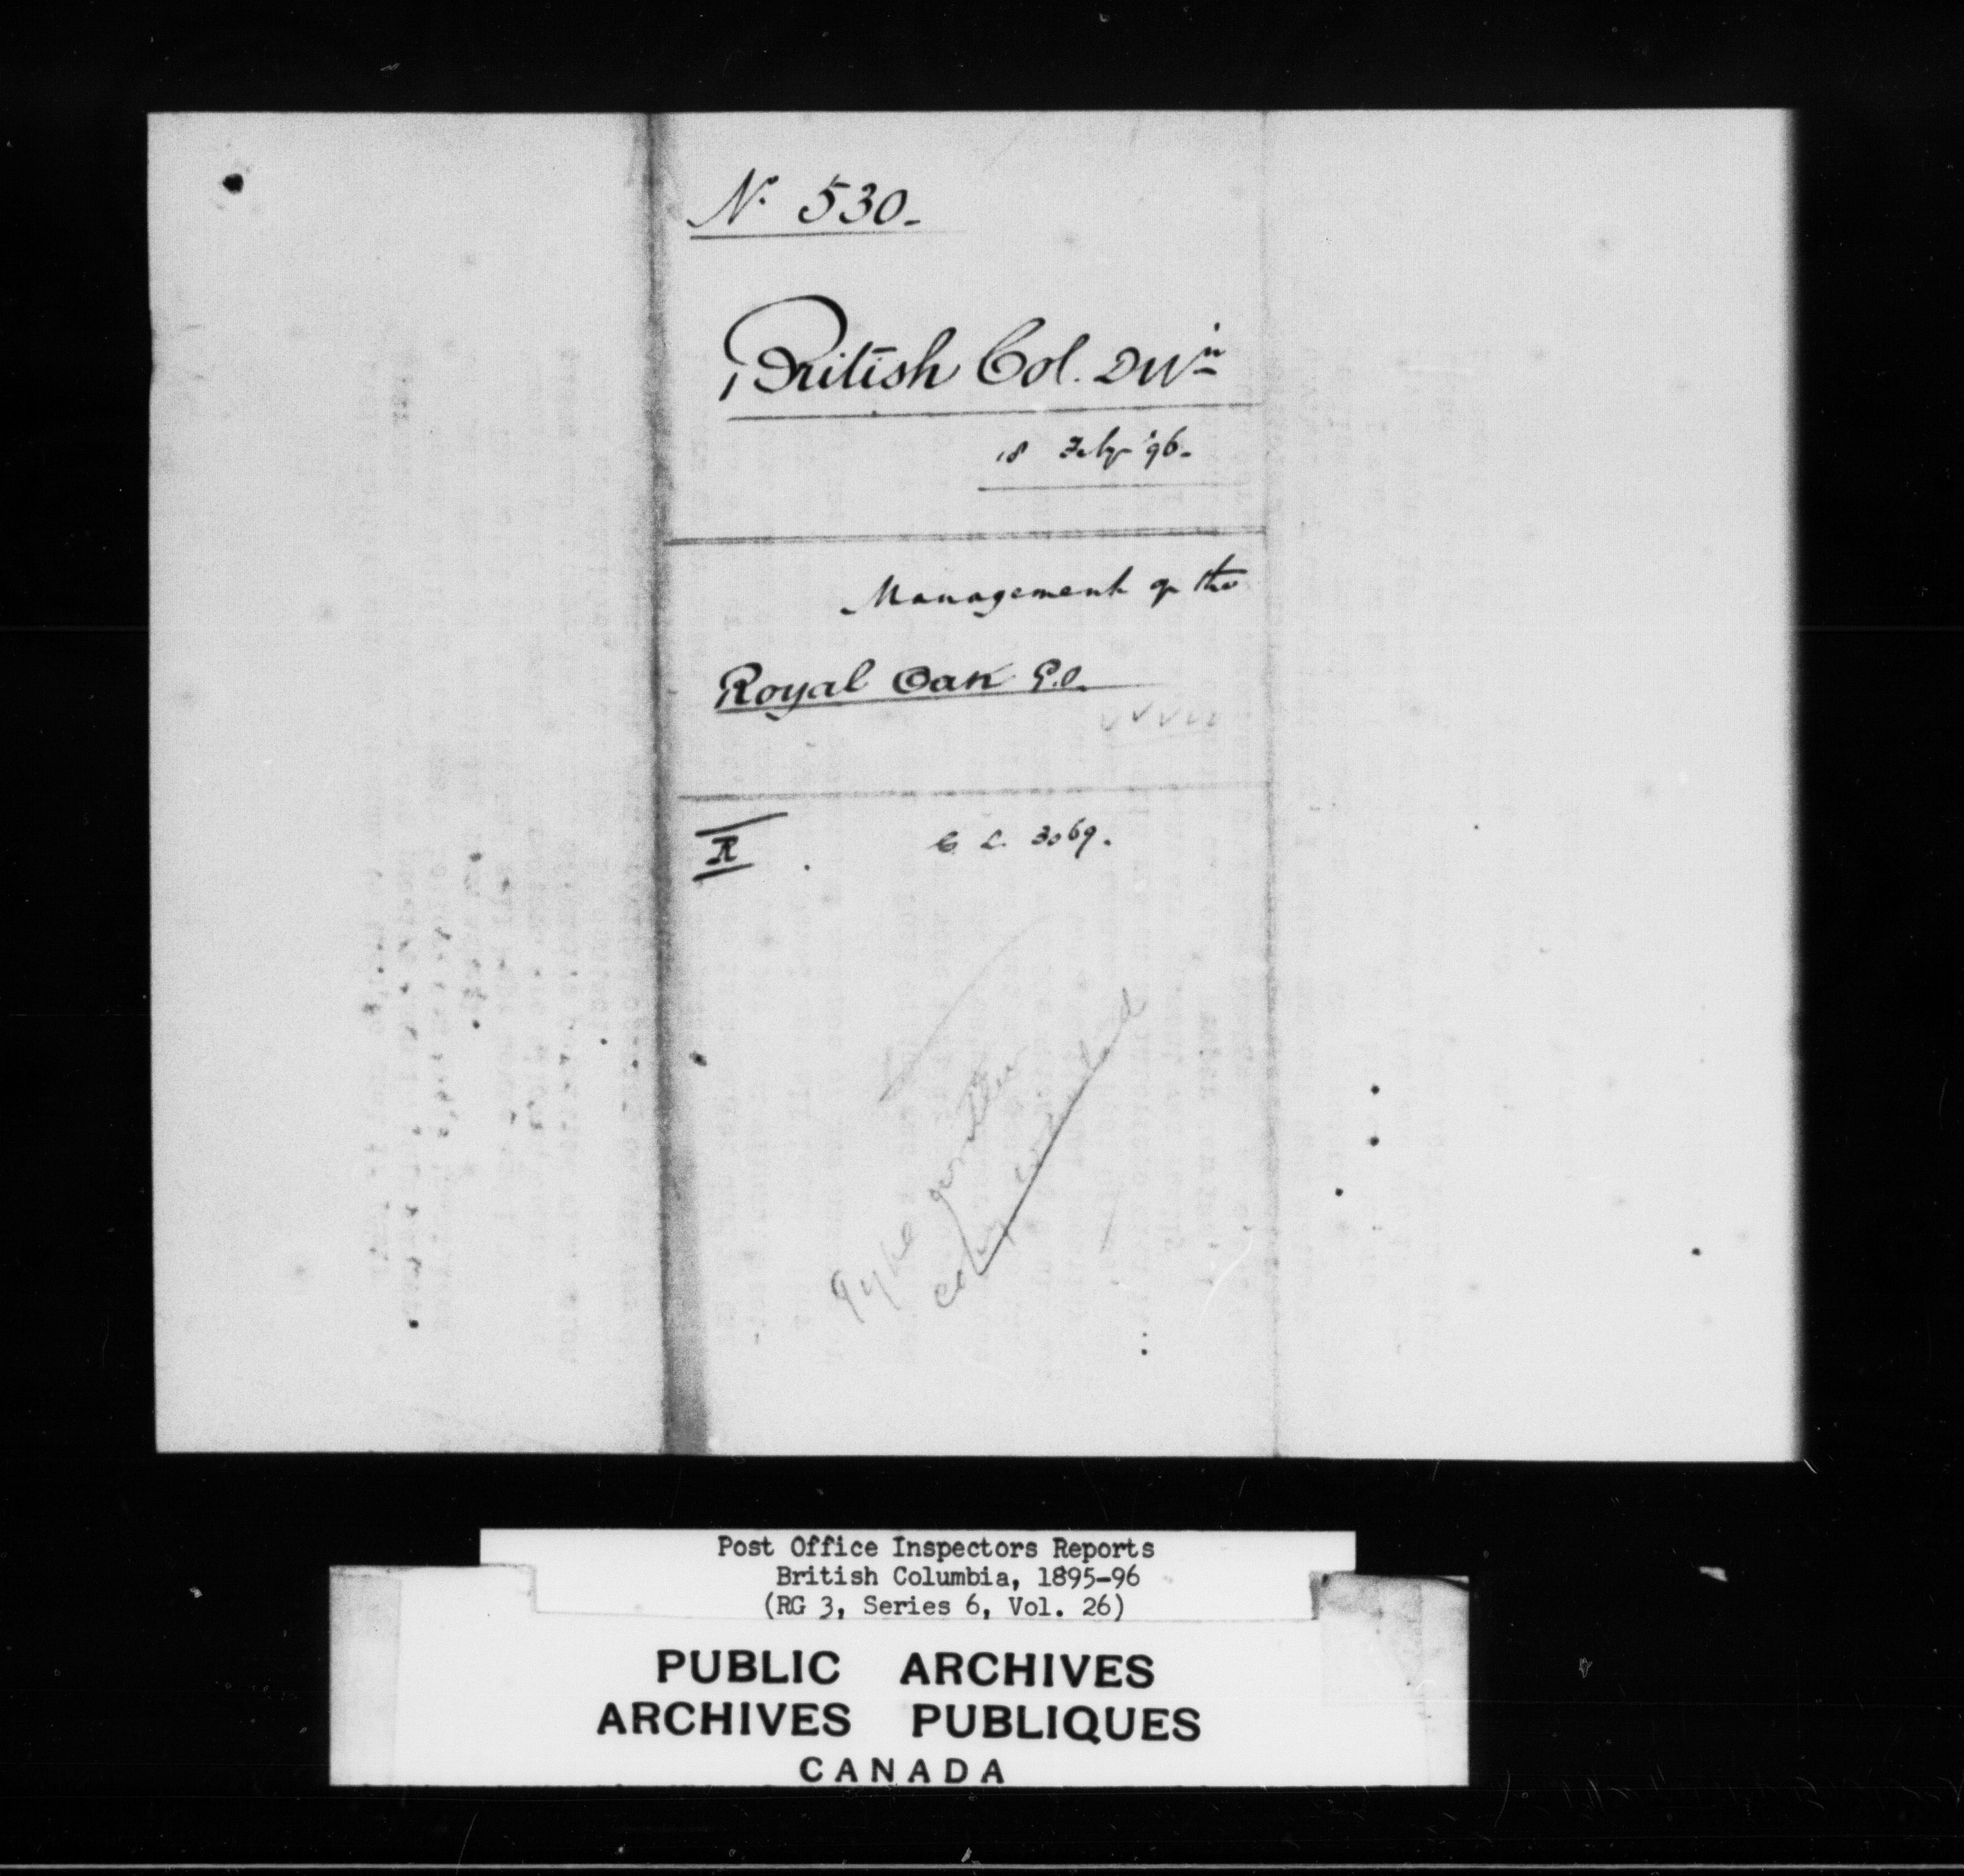 No. 530.
British Col. Divn
18 Feby '96.
Management of the
Royal Oak P.O.
R
C. L. 3069.
Post Office Inspectors Reports
British Columbia, 1895-96
(RG 3, Series 6, Vol. 26)
PUBLIC ARCHIVES
ARCHIVES PUBLIQUES
CANADA